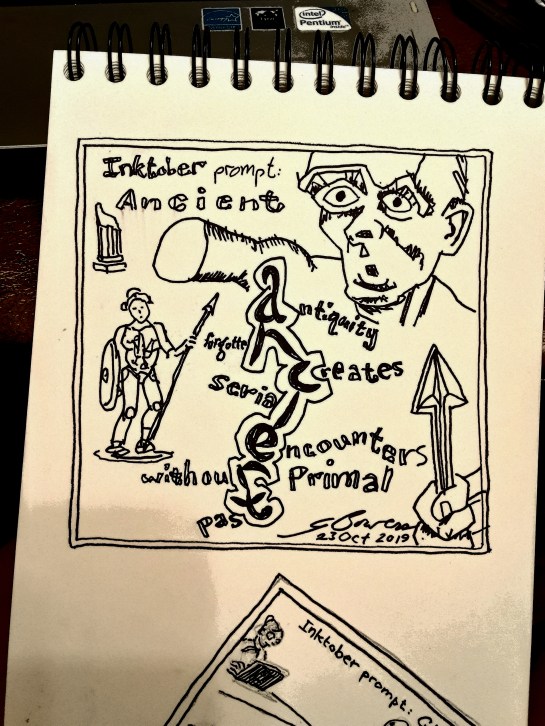 intel
Pentium
inside
Inktober prompt:
Ancient
antiquity
forgotten
creates
serial
encounters
without Primal
past
23 Oct 2019
Inktober prompt: